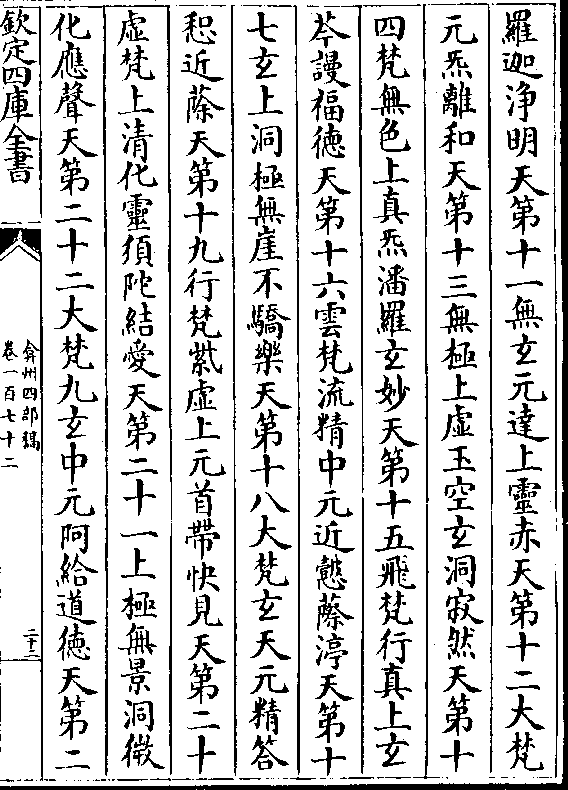 羅迦淨明天第十一無玄元達上靈赤天第十二大梵
元炁離和天第十三無極上虛玉空玄洞寂然天第十
四梵無色上真炁潘羅玄妙天第十五飛梵行真上玄
芩謾福徳天第十六雲梵流精中元近愆蔡渟天第十
七玄上洞極無崖不驕樂天第十八大梵玄天元精答
恕近蔡天第十九行梵紫虛上元首帶快見天第二十
虛梵上清化靈須陀結愛天第二十一上極無景洞微
化應聲天第二十二大梵九玄中元阿給道徳天第二
欽定四庫全書
弇州四部稿
卷一百七十二
二十三